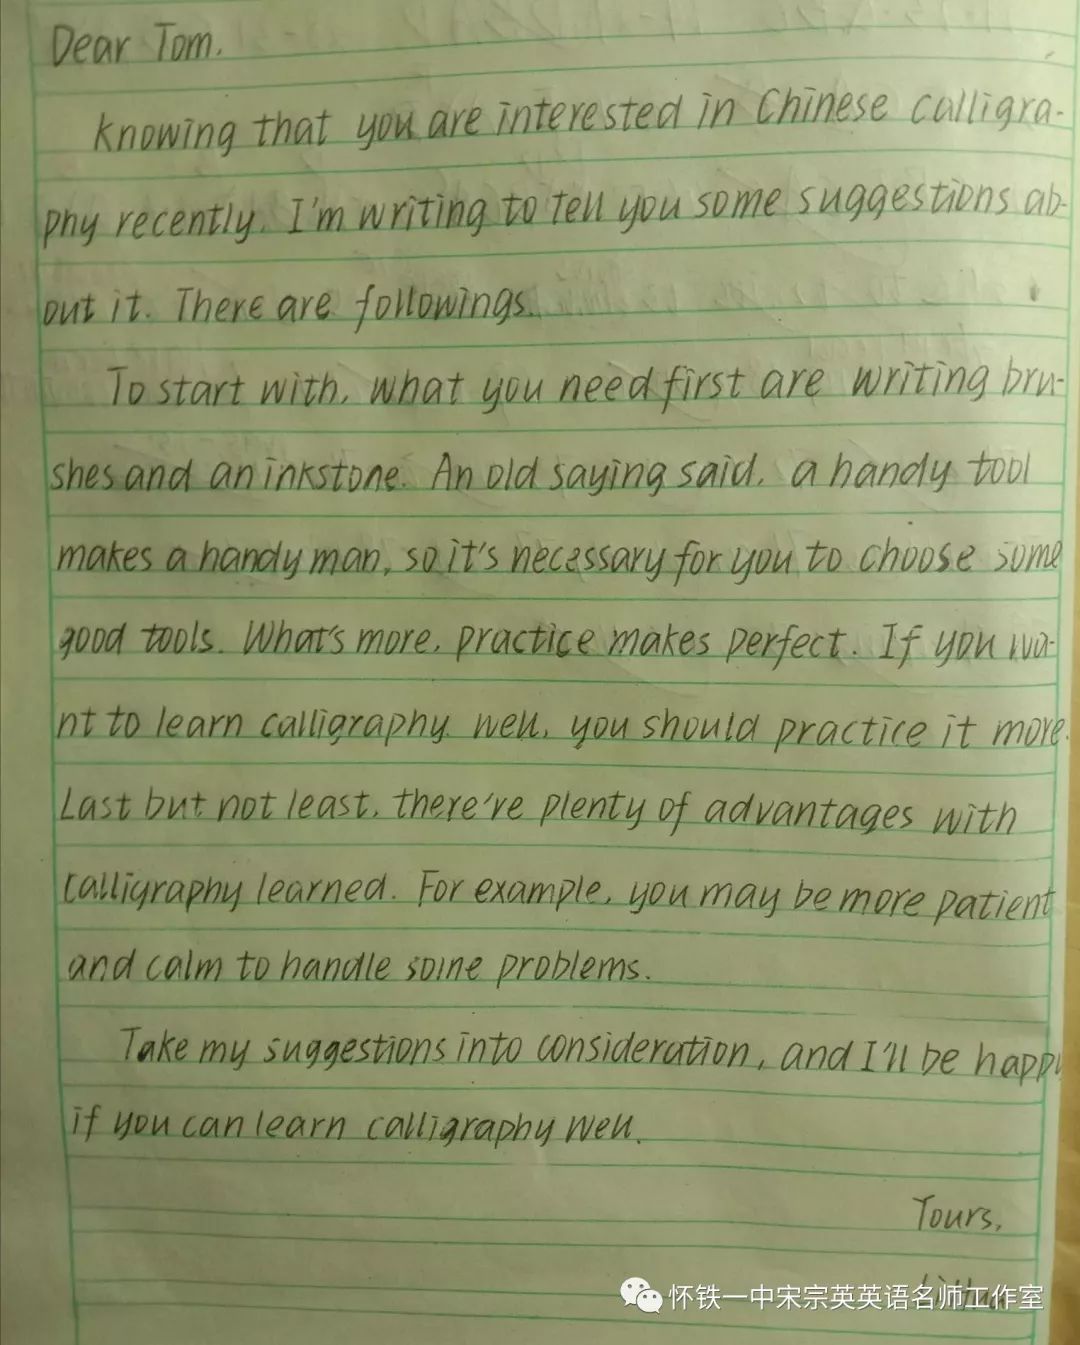 Dear Tom,
Knowing that you are interested in Chinese calligra-
phy recently, I'm writing to tell you some suggestions ab-
out it. There are followings.
To start with, what you need first are writing bru-
shes and an inkstone. An old saying said, a handy tool
makes a handy man, so it's necessary for you to choose some
good tools. What's more, practice makes perfect. If you wa-
nt to learn calligraphy well, you should practice it more.
Last but not least, there're plenty of advantages with
calligraphy learned. For example, you may be more patient
and calm to handle some problems.
Take my suggestions into consideration, and I'll be happy
if you can learn calligraphy well.
Yours,
怀铁一中宋宗英英语名师工作室